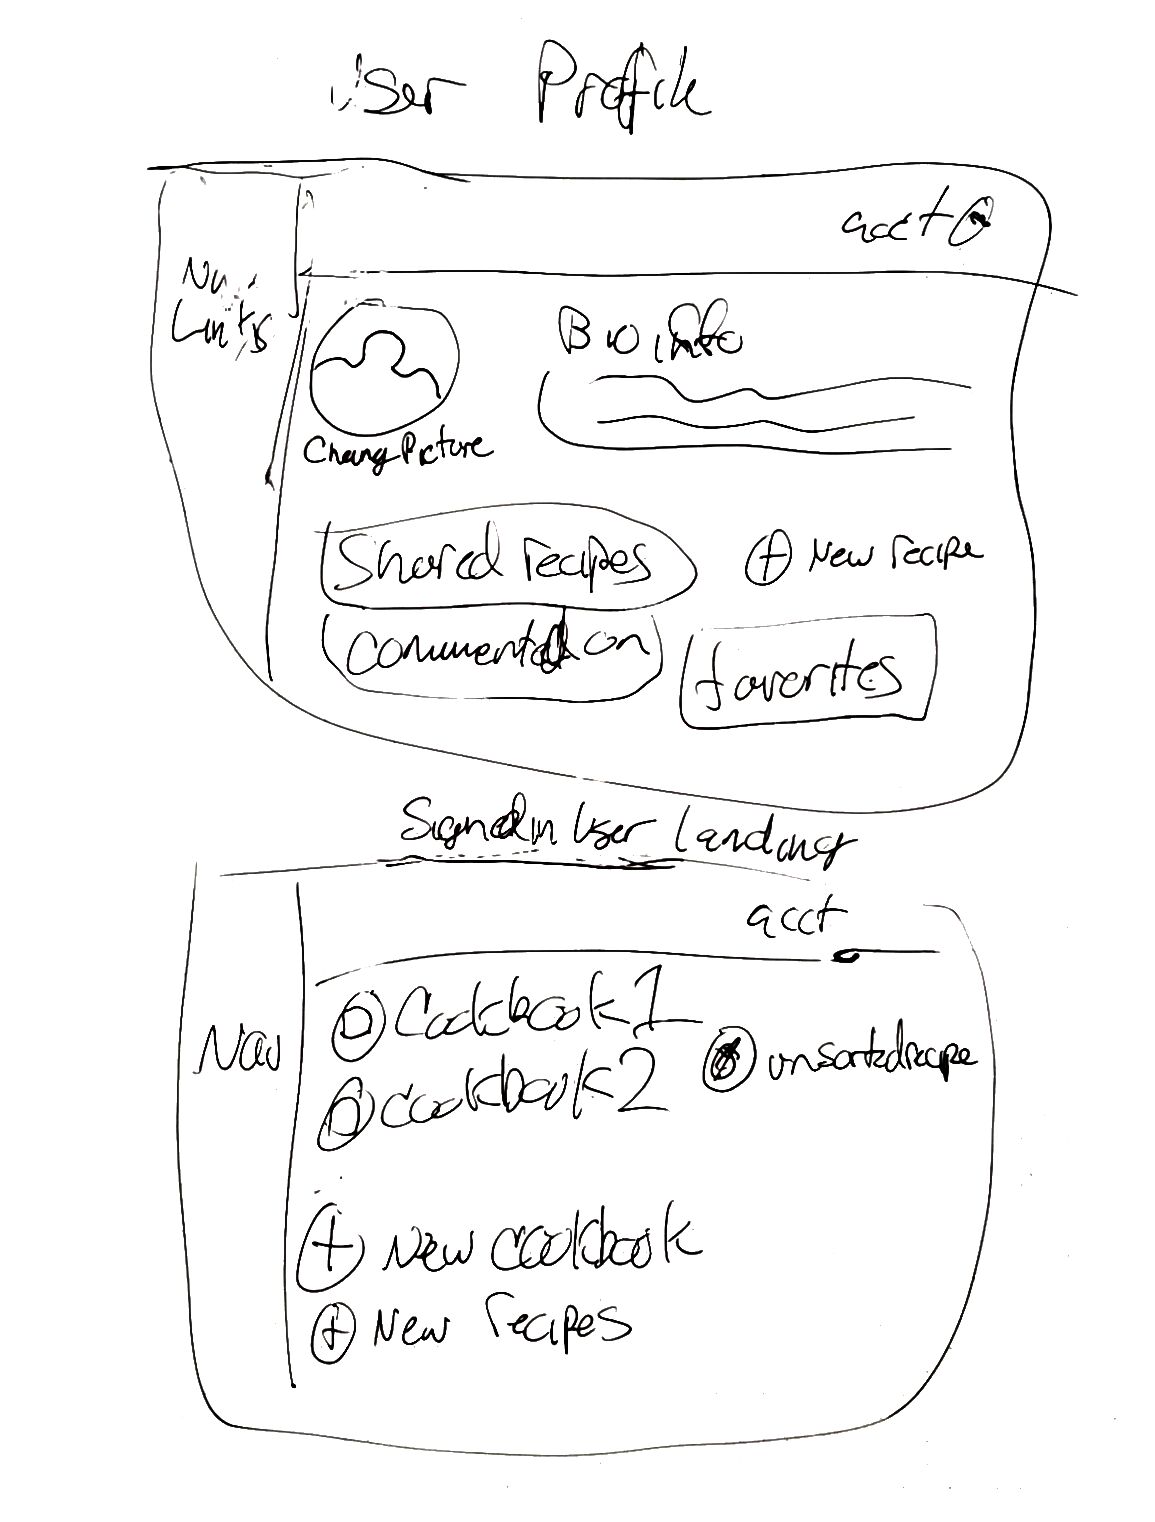 User Profile
acct
Nav
Links
Bio info
Chang Picture
Shared recipes
New recipe
Commented on
favorites
Signed in User Landing
acct
Nav
Cookbook 1
Cookbook 2
unsorted recipe
New cookbook
New recipes